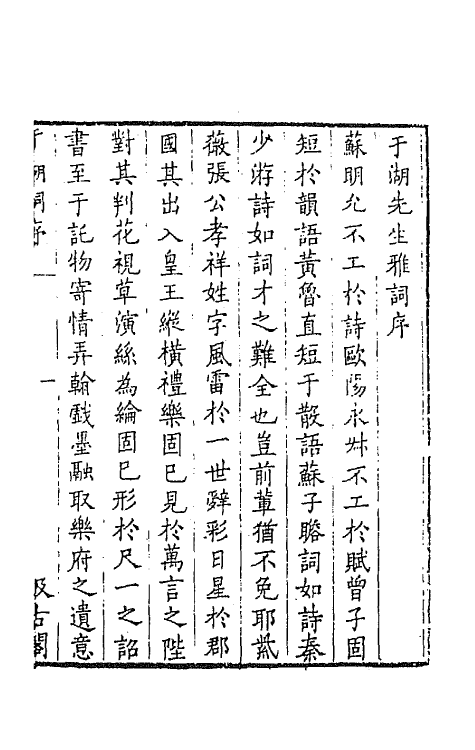 于湖先生雅詞序
蘇明允不工於詩歐陽永叔不工於賦曾子固
短於韻語黃魯直短于散語蘇子瞻詞如詩秦
少游詩如詞才之難全也豈前輩猶不免耶紫
薇張公孝祥姓字風雷於一世辭彩日星於郡
國其出入皇王縱橫禮樂固已見於萬言之陛
對其判花視草演絲為綸固已形於尺一之詔
書至于託物寄情弄翰戲墨融取樂府之遺意
于湖詞序 一 汲古閣